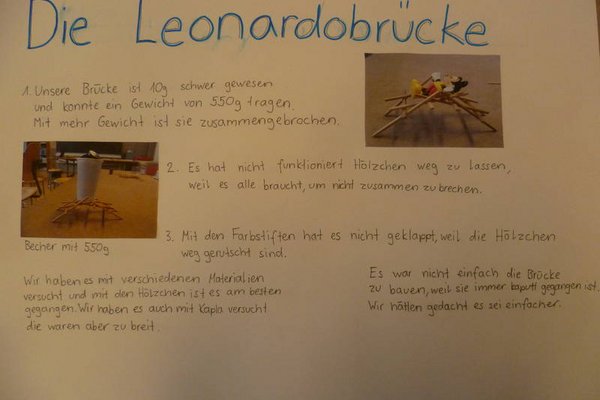 Die Leonardobrücke
1. Unsere Brücke ist 10g schwer gewesen
und konnte ein Gewicht von 550g tragen.
Mit mehr Gewicht ist sie zusammengebrochen.
2. Es hat nicht funktioniert Hölzchen weg zu lassen,
weil es alle braucht, um nicht zusammen zu brechen.
3. Mit den Farbstiften hat es nicht geklappt, weil die Hölzchen
weg gerutscht sind.
Becher mit 550g
Wir haben es mit verschiedenen Materialien
versucht und mit den Hölzchen ist es am besten
gegangen. Wir haben es auch mit Kapla versucht
die waren aber zu breit.
Es war nicht einfach die Brücke
zu bauen, weil sie immer kaputt gegangen ist.
Wir hätten gedacht es sei einfacher.